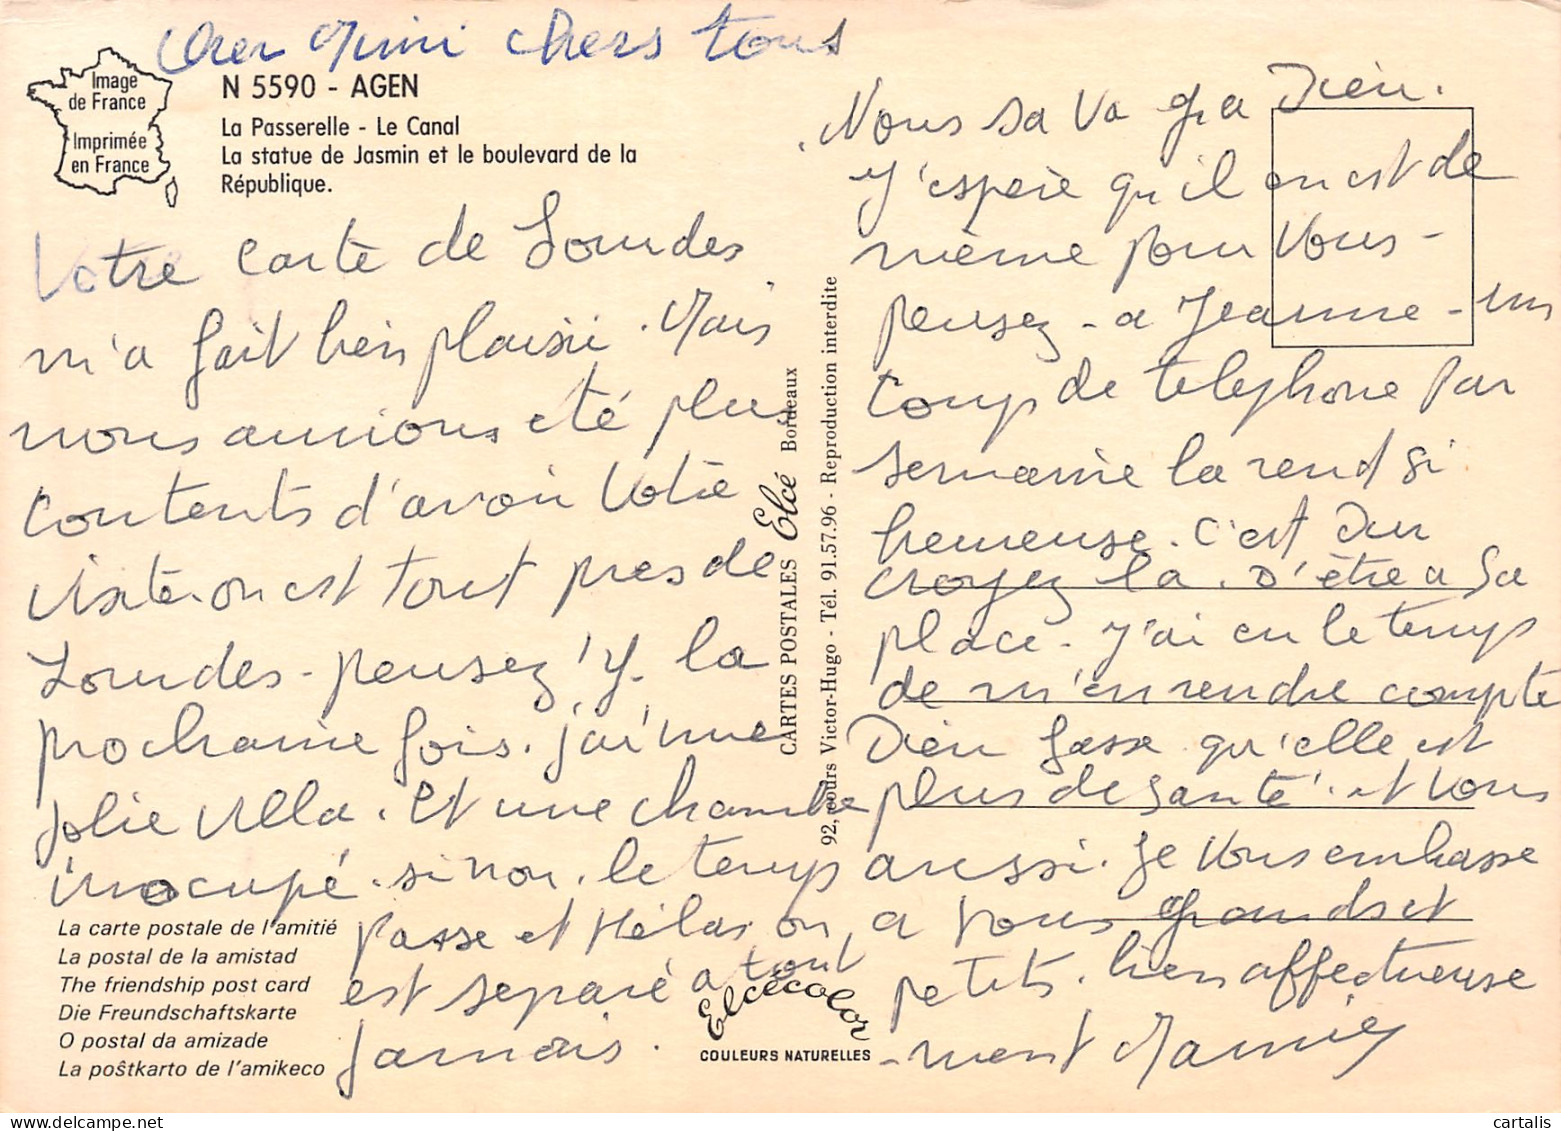 Cher Mimi chers tous
Image
de France
Imprimée
en France
N 5590 - AGEN
La Passerelle - Le Canal
La statue de Jasmin et le boulevard de la
République.
Votre carte de Lourdes
m'a fait bien plaisir. Mais
nous aurions été plus
contents d'avoir votre
visite. on est tout pres de
Lourdes - pensez'y. la
prochaine fois. j'ai une
jolie villa. et une chambre
inocupé. sinon. le temps
passe et Hélas on
est separé a tout
jamais.
La carte postale de l'amitié
La postal de la amistad
The friendship post card
Die Freundschaftskarte
O postal da amizade
La poŝtkarto de l'amikeco
CARTES POSTALES Elcé Bordeaux
92, cours Victor-Hugo - Tél. 91.57.96 - Reproduction interdite
Elcécolor
COULEURS NATURELLES
Nous sa va Dieu.
J'espère qu'il en est de
même pour vous -
pensez - a Jeanne - un
coup de telephone par
semaine la rend si
heureuse. C'est dur
croyez la. D'être a sa
place. J'ai eu le temps
de m'en rendre compte
Dieu fasse qu'elle est
plus de santé. et vous
aussi. Je vous embrasse
a vous grands et
petits. bien affectueuse
-ment Mamie
cartalis